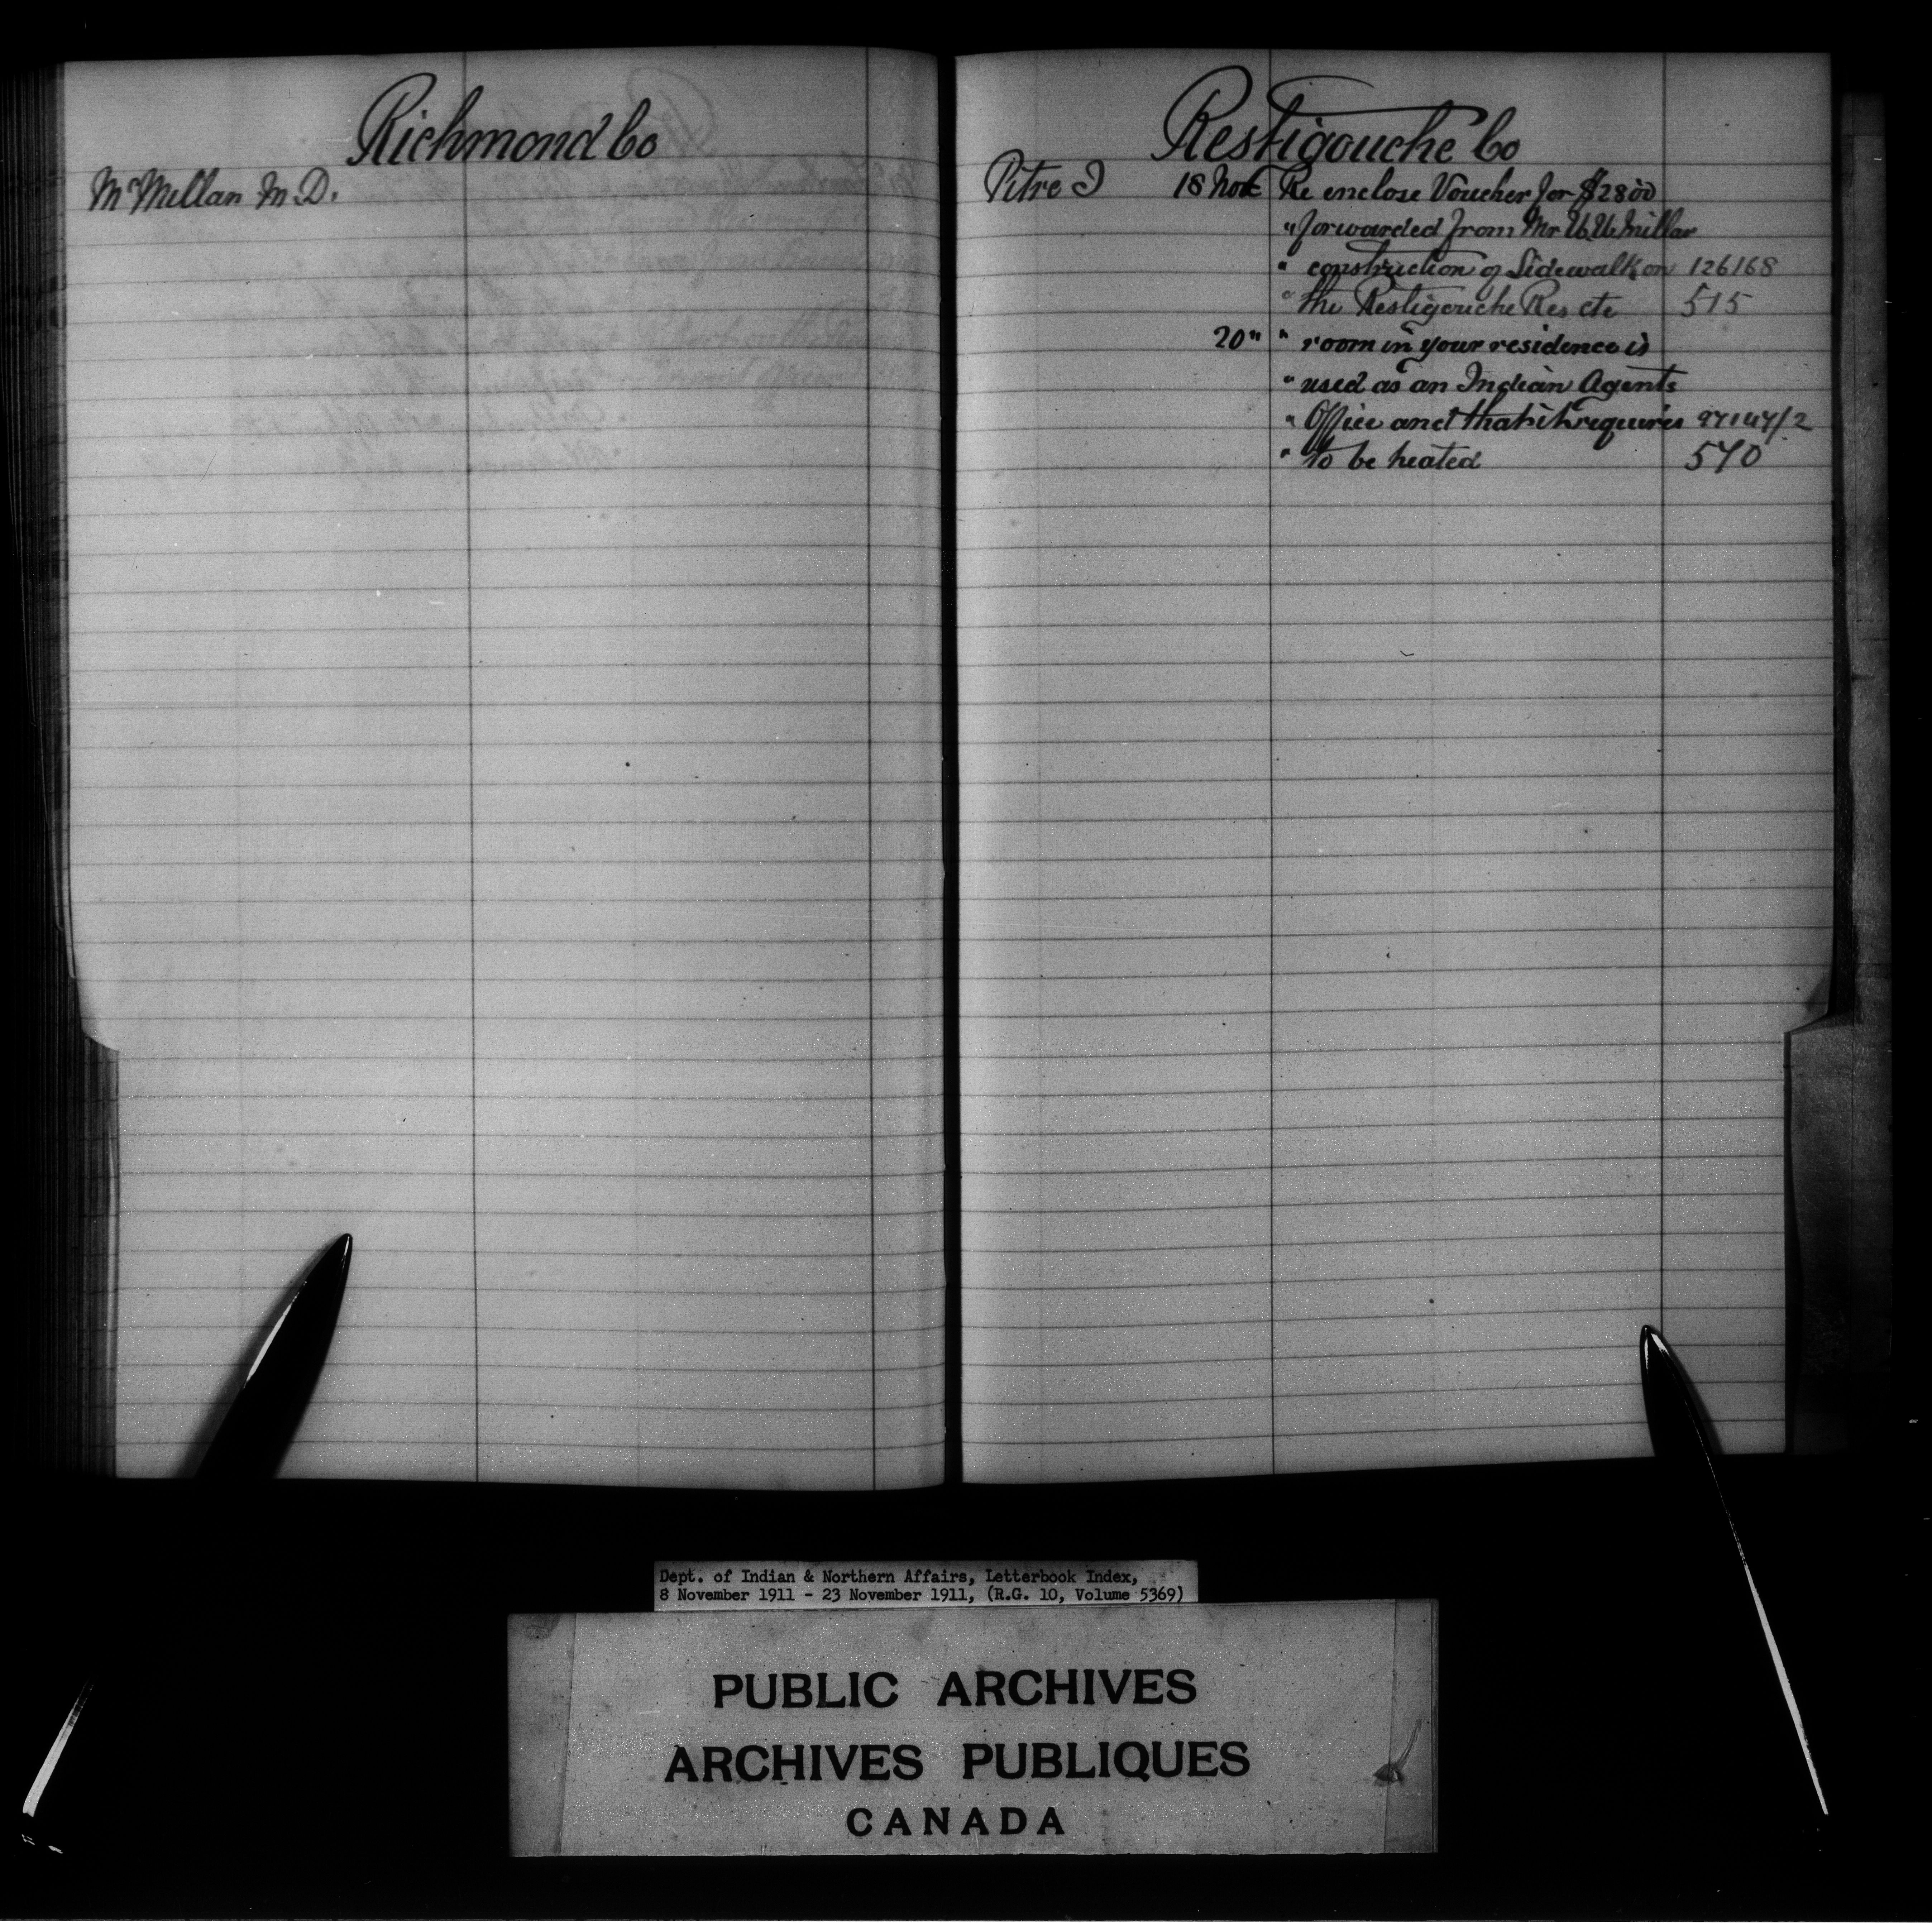 Richmond Co
McMillan M. D.
Restigouche Co
Pitre J 18 Nov Re enclose Voucher for $28 00
" forwarded from Mr Millar
" construction of Sidewalk on 126168
" the Restigouche Res etc 515
20 " " room in your residence is
" used as an Indian Agents
" Office and that it requires
" to be heated 570
Dept. of Indian & Northern Affairs, Letterbook Index,
8 November 1911 - 23 November 1911, (R.G. 10, Volume 5369)
PUBLIC ARCHIVES
ARCHIVES PUBLIQUES
CANADA